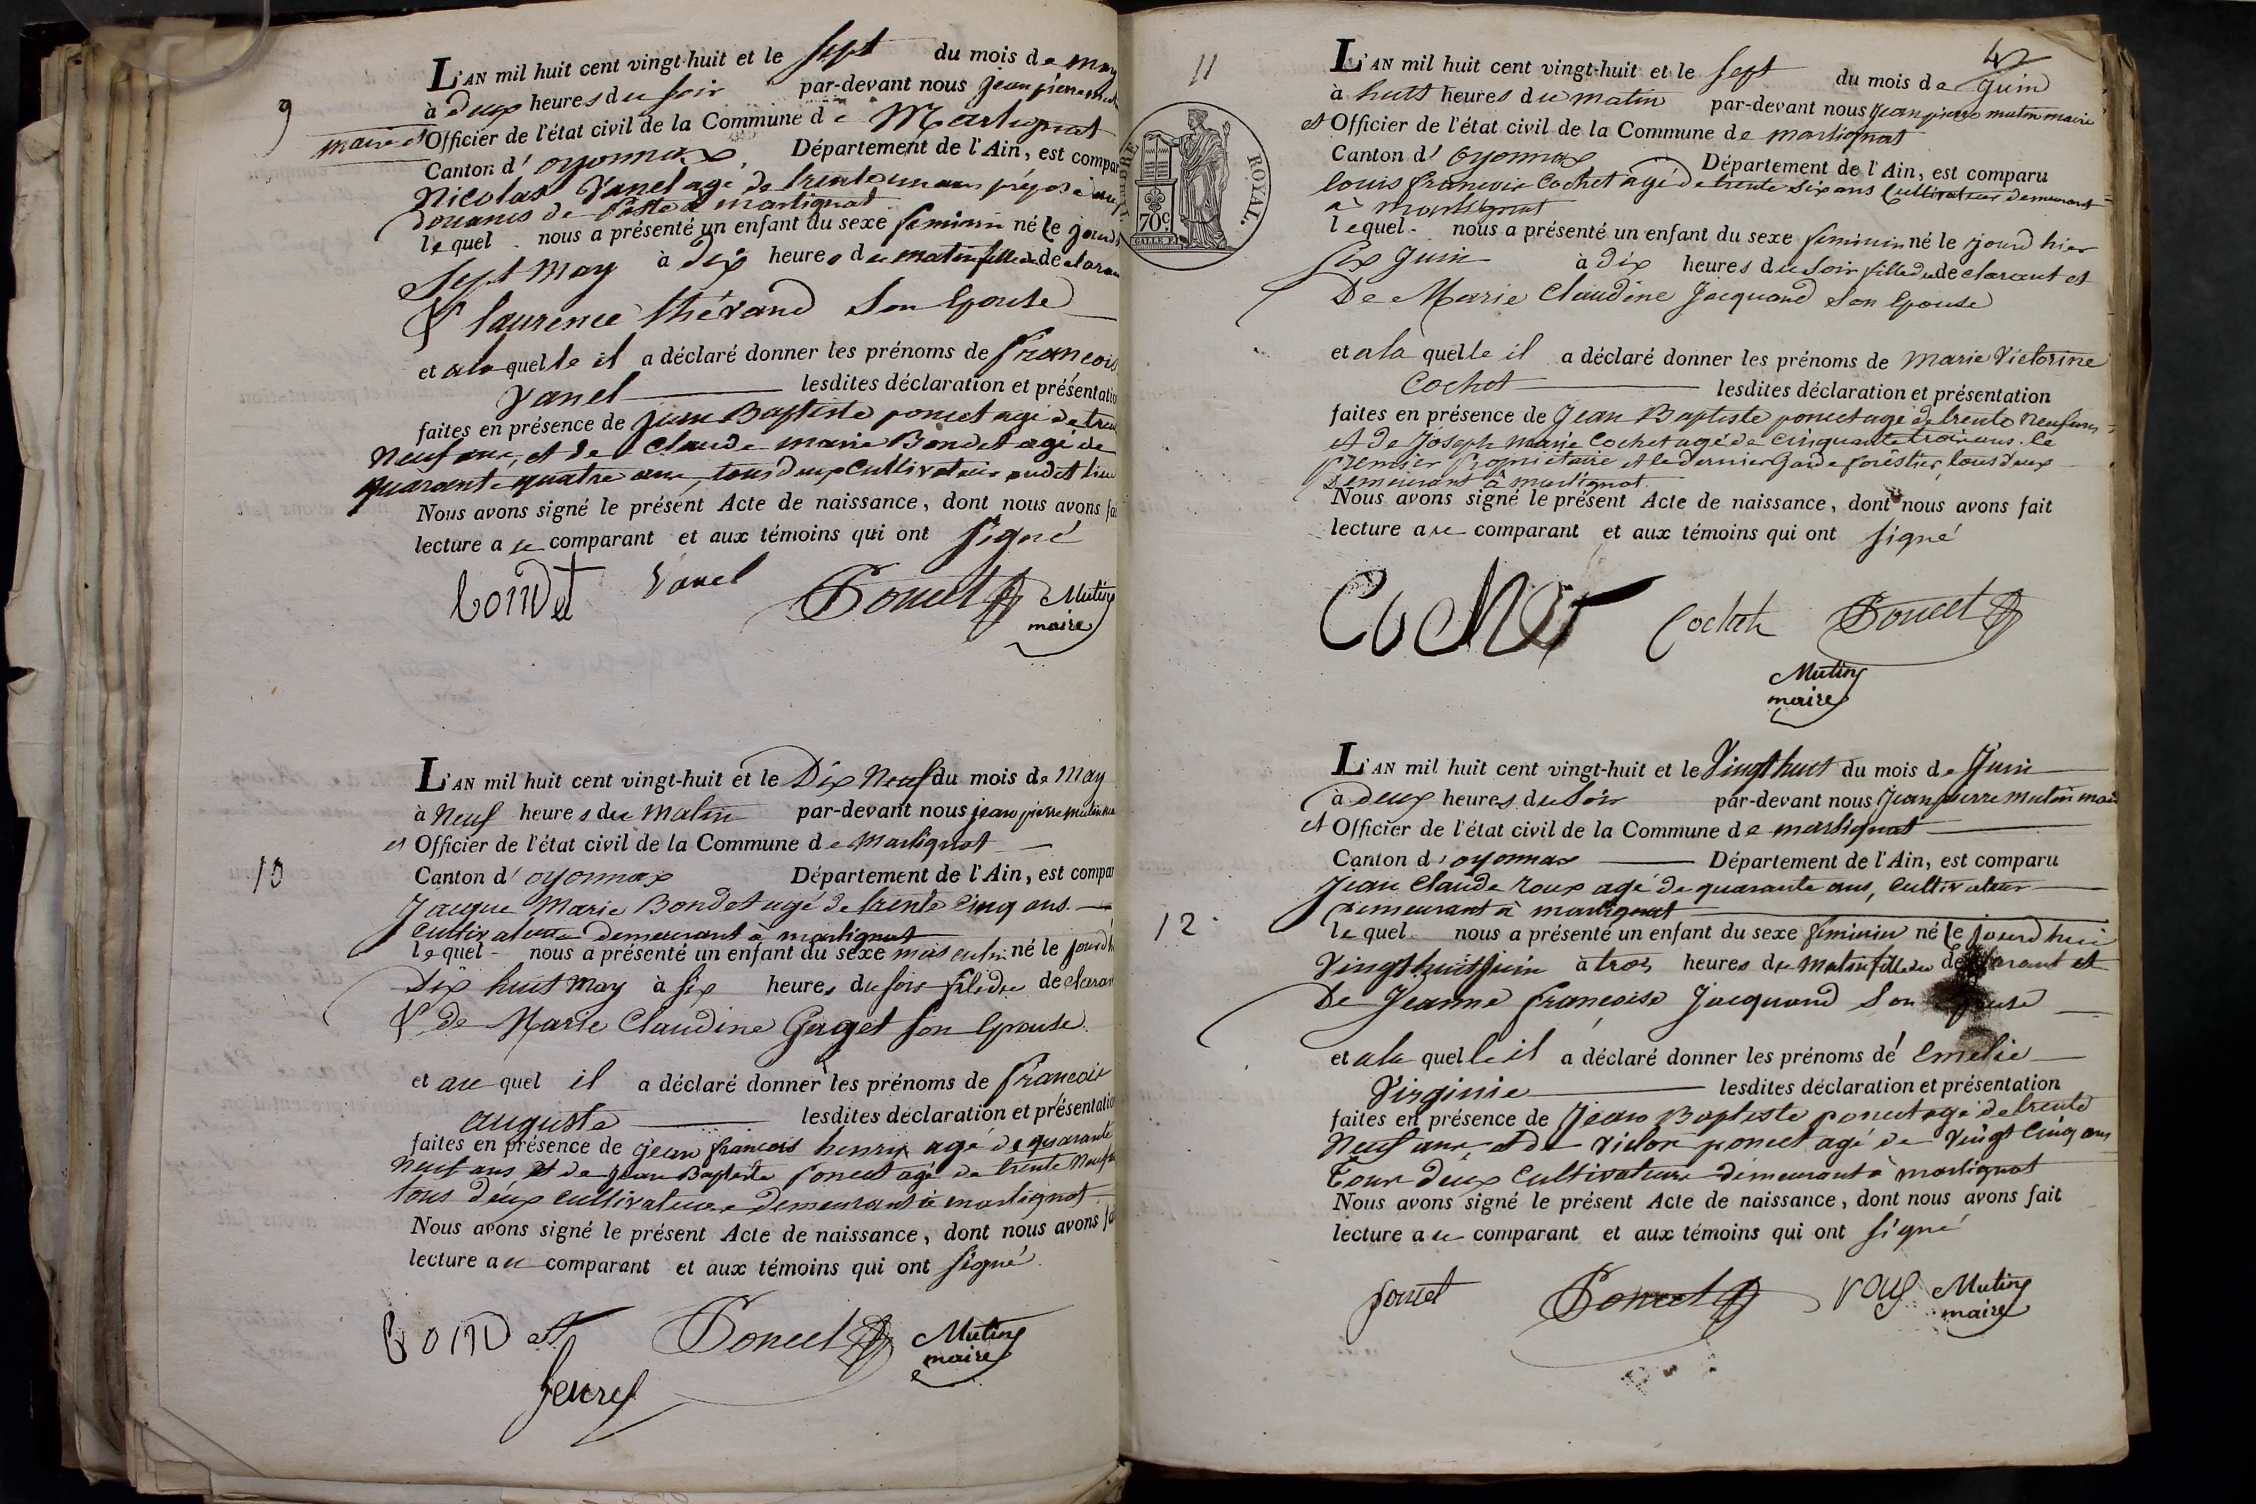 9
L'AN mil huit cent vingt-huit et le sept du mois de may
à deux heures du soir par-devant nous jean pierre
maire et Officier de l'état civil de la Commune de Martignat
Canton d'oyonnax, Département de l'Ain, est compar
Nicolas Vanel agé de trente un ans préposé aux
douanes de Poste à martignat
lequel nous a présenté un enfant du sexe feminin né le jourd
sept may à dix heures du matin fille du declaran
& laurence thévand son Epouse
et a la quelle il a déclaré donner les prénoms de françois
Vanel lesdites déclaration et présentatio
faites en présence de jean Baptiste poncet agé de tren
Neuf ans, et de Claude marie Bondet agé de
quarante quatre ans, tous deux Cultivateurs audit lieu
Nous avons signé le présent Acte de naissance, dont nous avons fai
lecture au comparant et aux témoins qui ont signé
bondet Vanel Poncet Mutin
maire
10
L'AN mil huit cent vingt-huit et le Dix Neuf du mois de May
à Neuf heures du Matin par-devant nous jean pierre mutin
et Officier de l'état civil de la Commune de Martignat
Canton d'oyonnax Département de l'Ain, est compar
Jacque Marie Bondet agé de trente Cinq ans
Cultivateur demeurant à martignat
lequel nous a présenté un enfant du sexe masculin né le jourdh
Dix huit May à six heures du soir fils du declaran
& de Marie Claudine Gaget son Epouse
et au quel il a déclaré donner les prénoms de françois
auguste lesdites déclaration et présentatio
faites en présence de jean françois henry agé de quarante
Neuf ans et de Jean Baptiste Poncet agé de trente Neuf
tous deux Cultivateurs demeurant à martignat
Nous avons signé le présent Acte de naissance, dont nous avons fa
lecture au comparant et aux témoins qui ont signé
bondet Poncet Mutin
maire
henry
42
11
TIMBRE ROYAL.
70c.
L'AN mil huit cent vingt-huit et le sept du mois de Juin
à huit heures du matin par-devant nous jean pierre mutin maire
et Officier de l'état civil de la Commune de martignat
Canton d'Oyonnax Département de l'Ain, est comparu
louis françois Cochet agé de trente six ans Cultivateur demeurant
à martignat
lequel nous a présenté un enfant du sexe feminin né le jourd hier
six Juin à dix heures du soir fille du declarant et
De Marie Claudine Jacquand son Epouse
et a la quelle il a déclaré donner les prénoms de Marie Victorine
Cochet lesdites déclaration et présentation
faites en présence de Jean Baptiste poncet agé de trente Neuf ans
et de Joseph marie Cochet agé de Cinquante trois ans. le
premier propriétaire et le dernier Garde forêstier, tous deux
Demeurant à martignat
Nous avons signé le présent Acte de naissance, dont nous avons fait
lecture au comparant et aux témoins qui ont signé
Cochet Cochet Poncet
Mutin
maire
12
L'AN mil huit cent vingt-huit et le Vingt huit du mois de Juin
à deux heures du soir par-devant nous Jean pierre Mutin mair
et Officier de l'état civil de la Commune de martignat
Canton d'oyonnax Département de l'Ain, est comparu
Jean Claude roux agé de quarante ans, Cultivateur
demeurant à martignat
lequel nous a présenté un enfant du sexe feminin né le jourd hui
Vingt huit Juin à trois heures du Matin fille du declarant et
De Jeanne françoise Jacquand Son Epouse
et a la quelle il a déclaré donner les prénoms dé Emelie
Virginie lesdites déclaration et présentation
faites en présence de Jean Baptiste poncet agé de trente
Neuf ans, et de victor poncet agé de Vingt Cinq ans
Tous deux Cultivateurs demeurant à martignat
Nous avons signé le présent Acte de naissance, dont nous avons fait
lecture au comparant et aux témoins qui ont signé
poncet Poncet roux Mutin
maire